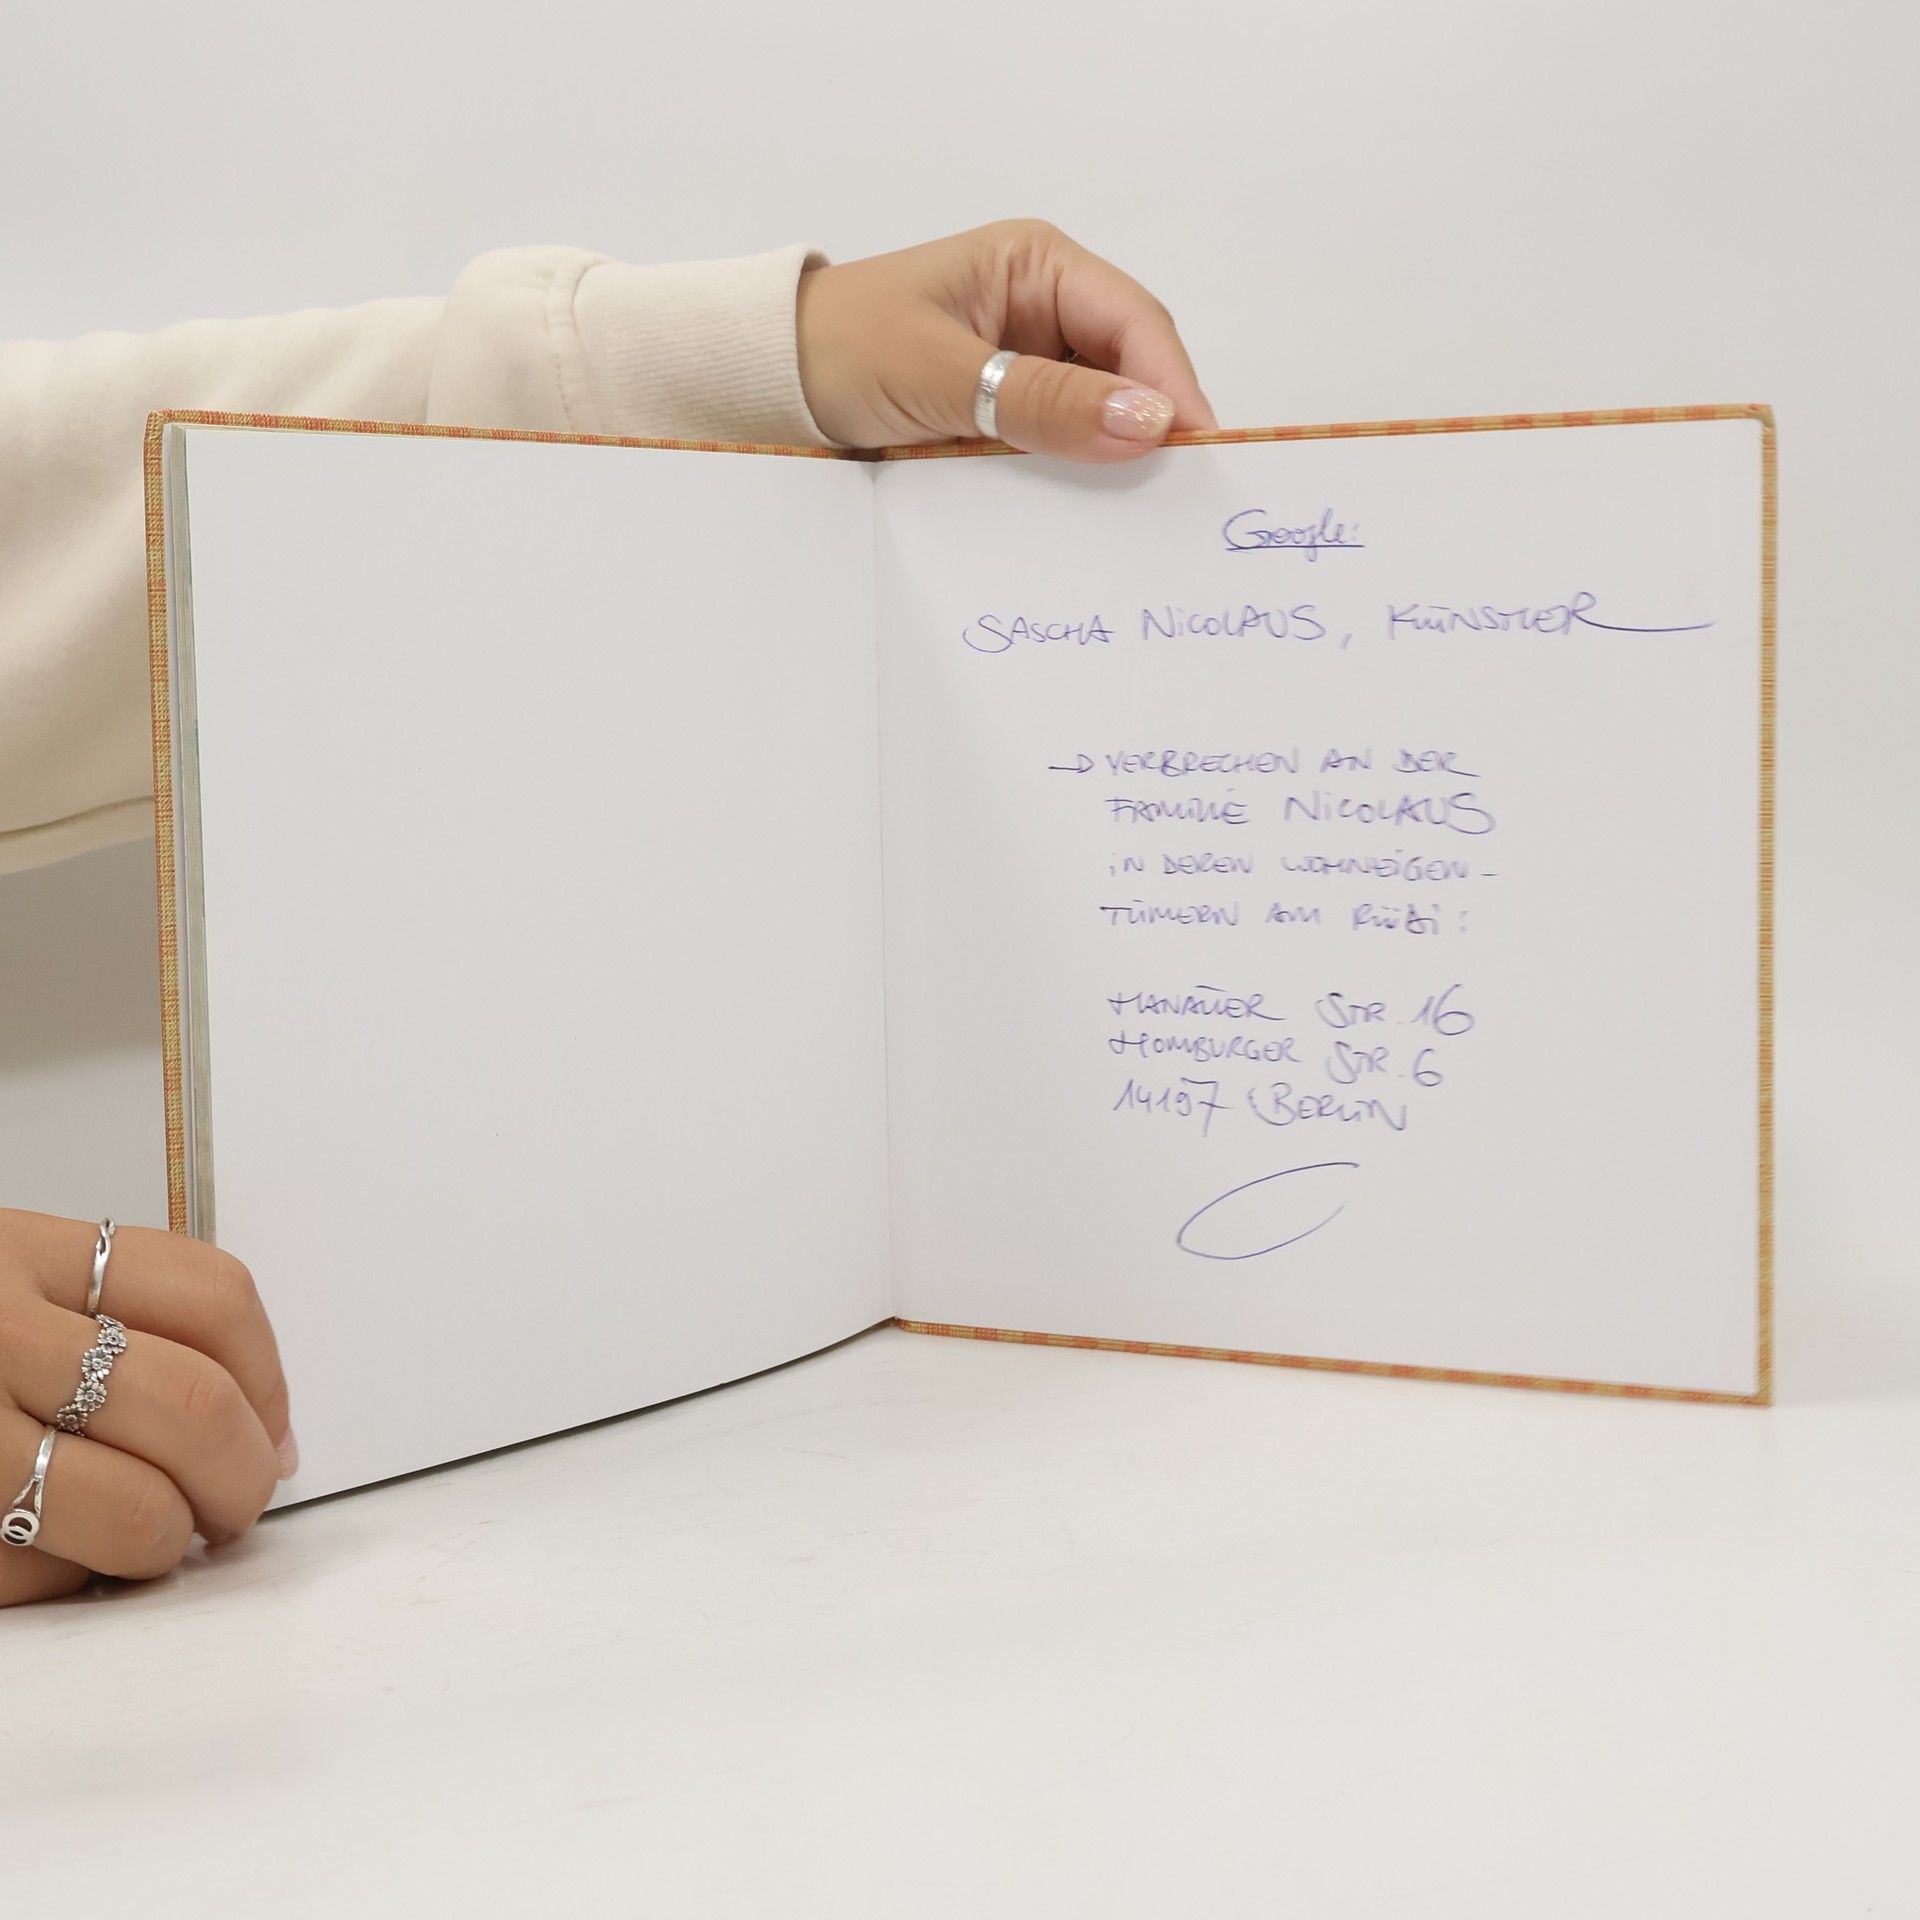 Google:
SASCHA NICOLAUS, KÜNSTLER
→ VERBRECHEN AN DER
FAMILIE NICOLAUS
IN DEREN WOHNEIGEN-
TÜMERN AM RÜDI:
HANAUER STR. 16
HOMBURGER STR. 6
14197 BERLIN